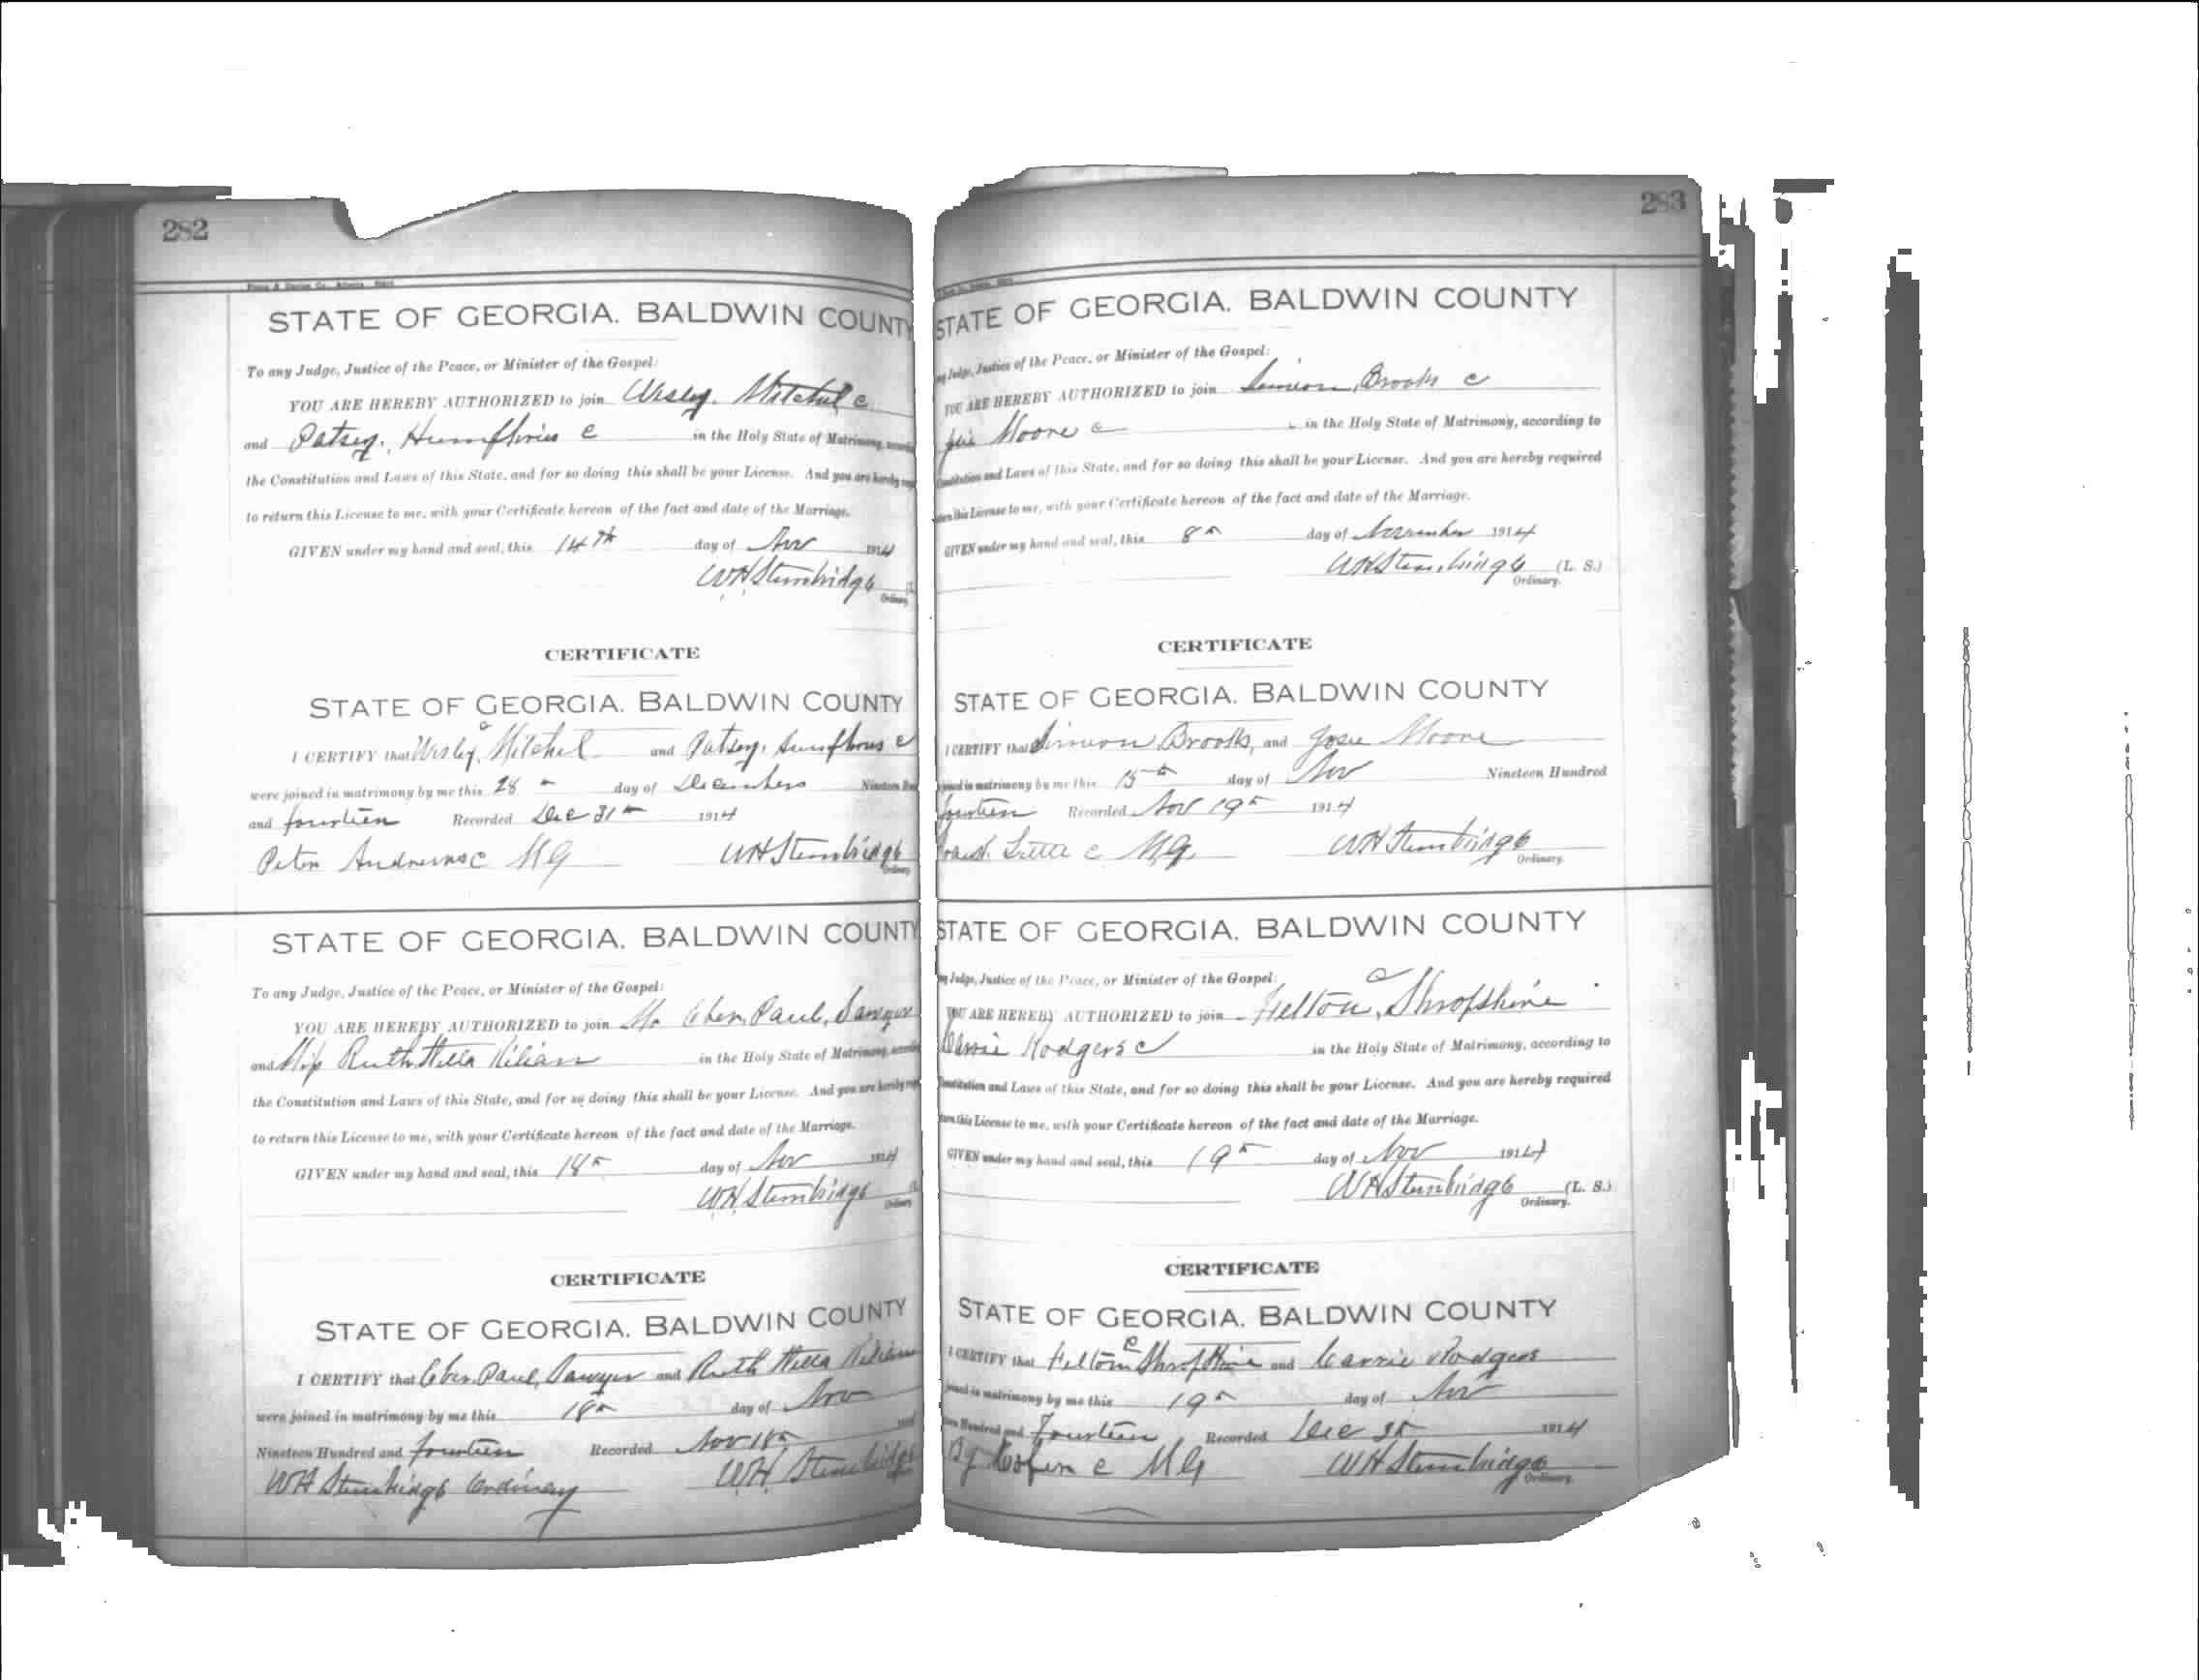 282
STATE OF GEORGIA. BALDWIN COUNTY
To any Judge, Justice of the Peace, or Minister of the Gospel:
YOU ARE HEREBY AUTHORIZED to join Wesley, Mitchel c
and Patsey, Humphries c in the Holy State of Matrimony,
the Constitution and Laws of this State, and for so doing this shall be your License. And you are hereby
to return this License to me, with your Certificate hereon of the fact and date of the Marriage.
GIVEN under my hand and seal, this 14th day of Nov 1914
WH Stembridge
Ordinary
CERTIFICATE
STATE OF GEORGIA. BALDWIN COUNTY
c
I CERTIFY that Wesley, Mitchel and Patsey, c
were joined in matrimony by me this 28 day of December Nineteen
and fourteen Recorded Dec 31 1914
Peter Andrews c MG WH Stembridge
Ordinary
STATE OF GEORGIA. BALDWIN COUNTY
To any Judge, Justice of the Peace, or Minister of the Gospel:
YOU ARE HEREBY AUTHORIZED to join Mr Eben, Paul, Sawyer
and Miss Ruth Kilian in the Holy State of Matrimony,
the Constitution and Laws of this State, and for so doing this shall be your License. And you are hereby
to return this License to me, with your Certificate hereon of the fact and date of the Marriage.
GIVEN under my hand and seal, this 18th day of Nov 1914
WH Stembridge
Ordinary
CERTIFICATE
STATE OF GEORGIA. BALDWIN COUNTY
I CERTIFY that Eben, Paul, Sawyer and Ruth Kilian
were joined in matrimony by me this 18th day of Nov
Nineteen Hundred and fourteen Recorded Nov 18th
WH Stembridge Ordinary WH Stembridge
283
STATE OF GEORGIA. BALDWIN COUNTY
Judge, Justice of the Peace, or Minister of the Gospel:
YOU ARE HEREBY AUTHORIZED to join Simeon, Brooks c
Moore c in the Holy State of Matrimony, according to
Constitution and Laws of this State, and for so doing this shall be your License. And you are hereby required
this License to me, with your Certificate hereon of the fact and date of the Marriage.
GIVEN under my hand and seal, this 8th day of November 1914
WH Stembridge (L. S.)
Ordinary.
CERTIFICATE
STATE OF GEORGIA. BALDWIN COUNTY
I CERTIFY that Simeon Brooks, and Josie Moore
in matrimony by me this 15th day of Nov Nineteen Hundred
fourteen Recorded Nov 19th 1914
c MG WH Stembridge
Ordinary.
STATE OF GEORGIA. BALDWIN COUNTY
Judge, Justice of the Peace, or Minister of the Gospel:
c
YOU ARE HEREBY AUTHORIZED to join Felton, Shropshire
Carrie Rodgers c in the Holy State of Matrimony, according to
Constitution and Laws of this State, and for so doing this shall be your License. And you are hereby required
this License to me, with your Certificate hereon of the fact and date of the Marriage.
GIVEN under my hand and seal, this 19th day of Nov 1914
WH Stembridge (L. S.)
Ordinary.
CERTIFICATE
STATE OF GEORGIA. BALDWIN COUNTY
c
I CERTIFY that Felton Shropshire and Carrie Rodgers
in matrimony by me this 19th day of Nov
Hundred and Fourteen Recorded Dec 1914
c MG WH Stembridge
Ordinary.